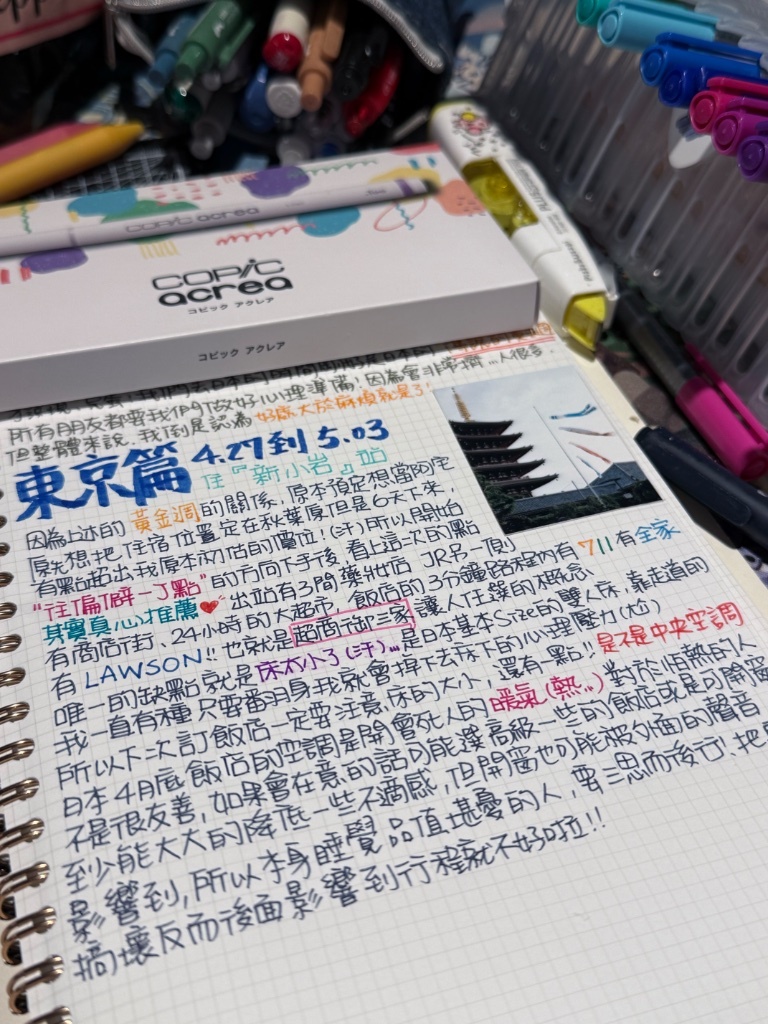 COPIC acrea
COPIC
acrea
コピック アクレア
コピック アクレア
人很多.
所有朋友都要我們做好心理準備! 因為會非常擠
但整體來說. 我倒是認為 好感大於麻煩就是了!
東京篇 4.27到 5.03
住『新小岩』站
因為上述的 黃金週 的關係, 原本預定想當阿宅
原先想把住宿位置定在秋葉原但是6天下來,
有點超出我原本初估的價位! (汗) 所以開始
"往偏僻一丁點" 的方向下手後, 看上這次的點
其實真心推薦 出站有3間藥妝店 JR另一側
有商店街、24小時的大超市, 飯店的3分鐘路程內有 711 有全家
有 LAWSON!! 也就是 超商御三家 讓人住錢的概念
唯一的缺點就是 床太小了(汗)... 是日本基本Size的雙人床, 靠走道的
我一直有種只要番羽身我就會掉下去床下的心理壓力(尬)
所以下次訂飯店一定要注意床的大小, 還有一點!! 是不是中央空調
日本4月底飯店的空調是開會死人的 暖氣(熱..) 對於怕熱的人
不是很友善, 如果會在意的話可能選高級一些的飯店或是可開窗
至少能大大的降低一些不適感, 但開窗也可能被外面的聲音
影響到, 所以本身睡覺品值堪憂的人, 要三思而後行, 把
搞壞反而後面影響到行程就不好啦!!